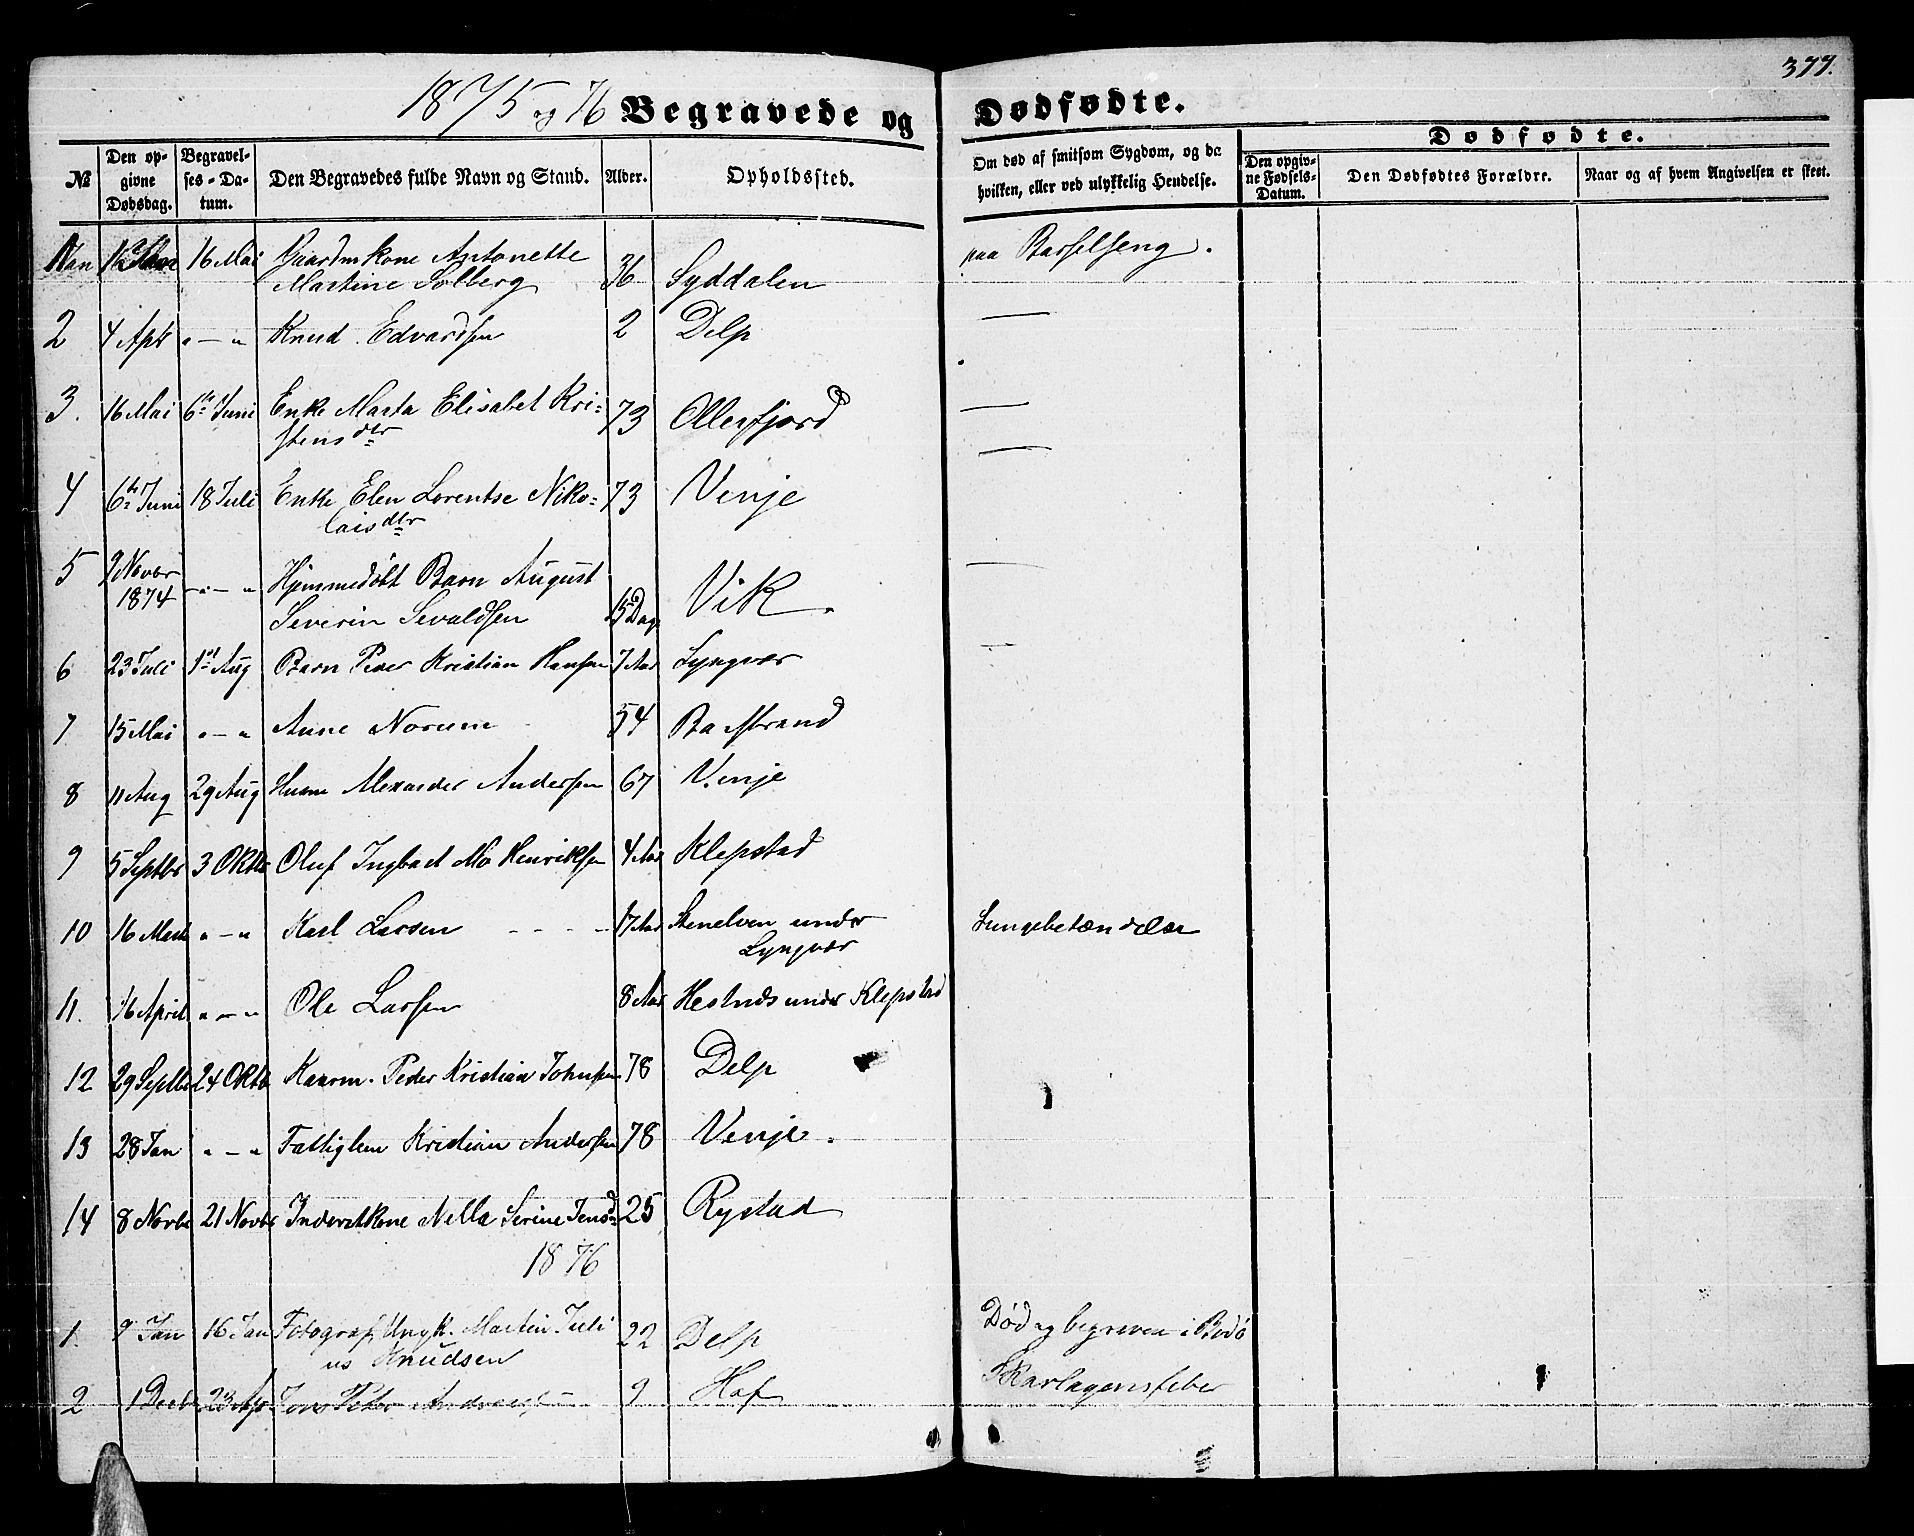 377.
1875 og 76 Begravede og Dødfødte.
№ Den opgivne Dødsdag. Begravelses-Datum. Den Begravedes fulde Navn og Stand. Alder. Opholdssted. Om død af smitsom Sygdom, og da hvilken, eller ved ulykkelig Hendelse. Dødfødte. Den opgivne Fødsels-Datum. Den Dødfødtes Forældre. Naar og af hvem Angivelsen er skeet.
16 Mai Gaardmkone Antonette paa Barselseng.
Martine Solberg 36 Syddalen
2 4 Apr " — " Knud Edvardsen 2 Delp —
3. 16 Mai 6te Juni Enke Marta Elisabet Kri- 73 Ollerfjord —
stensdtr
4 6te Juni 18 Juli Enke Elen Lorentse Niko- 73 Venje —
laisdtr
5 2 Novbr " — " Hjemmedøbt Barn August Vik. —
1874 Severin Sevaldsen 15 Dag
6 23 Juli 1st Aug Barn Peder Kristian Hansen 7 Aar Lyngvær —
7 15 Mai " — " Anne Norum 54 Ba Strand
8 11 Aug 29 Aug Huusm Alexander Andersen 67 Venje
9 5 Septbr 3 Oktbr Oluf Ingbart Mo Henriksen 4 Aar Klepstad
10 16 Marts " — " Karl Larsen - - - - 17 Aar Stenelven under Lungebetændelse
Lyngvær
11. 16 April " — " Ole Larsen 8 Aar Hestnæs under Klepstad
12 29 Septbr 24 Oktb Kaarm. Peder Kristian Johnsen 78 Delp
13 28 Jan " — " Fattiglem Kristian Andersen 78 Venje.
14 8 Novbr 21 Novbr Inderstkone Nella Serine Jensd 25 Rystad
1876
1. 9 Jan 16 Jan Fotograf Ungk. Martin Juli 22 Delp Død og begraven i Bodø
us Knudsen
2 1 Decb 23 Apr Jons Peter Andreassen 9 Hof Skarlagensfeber